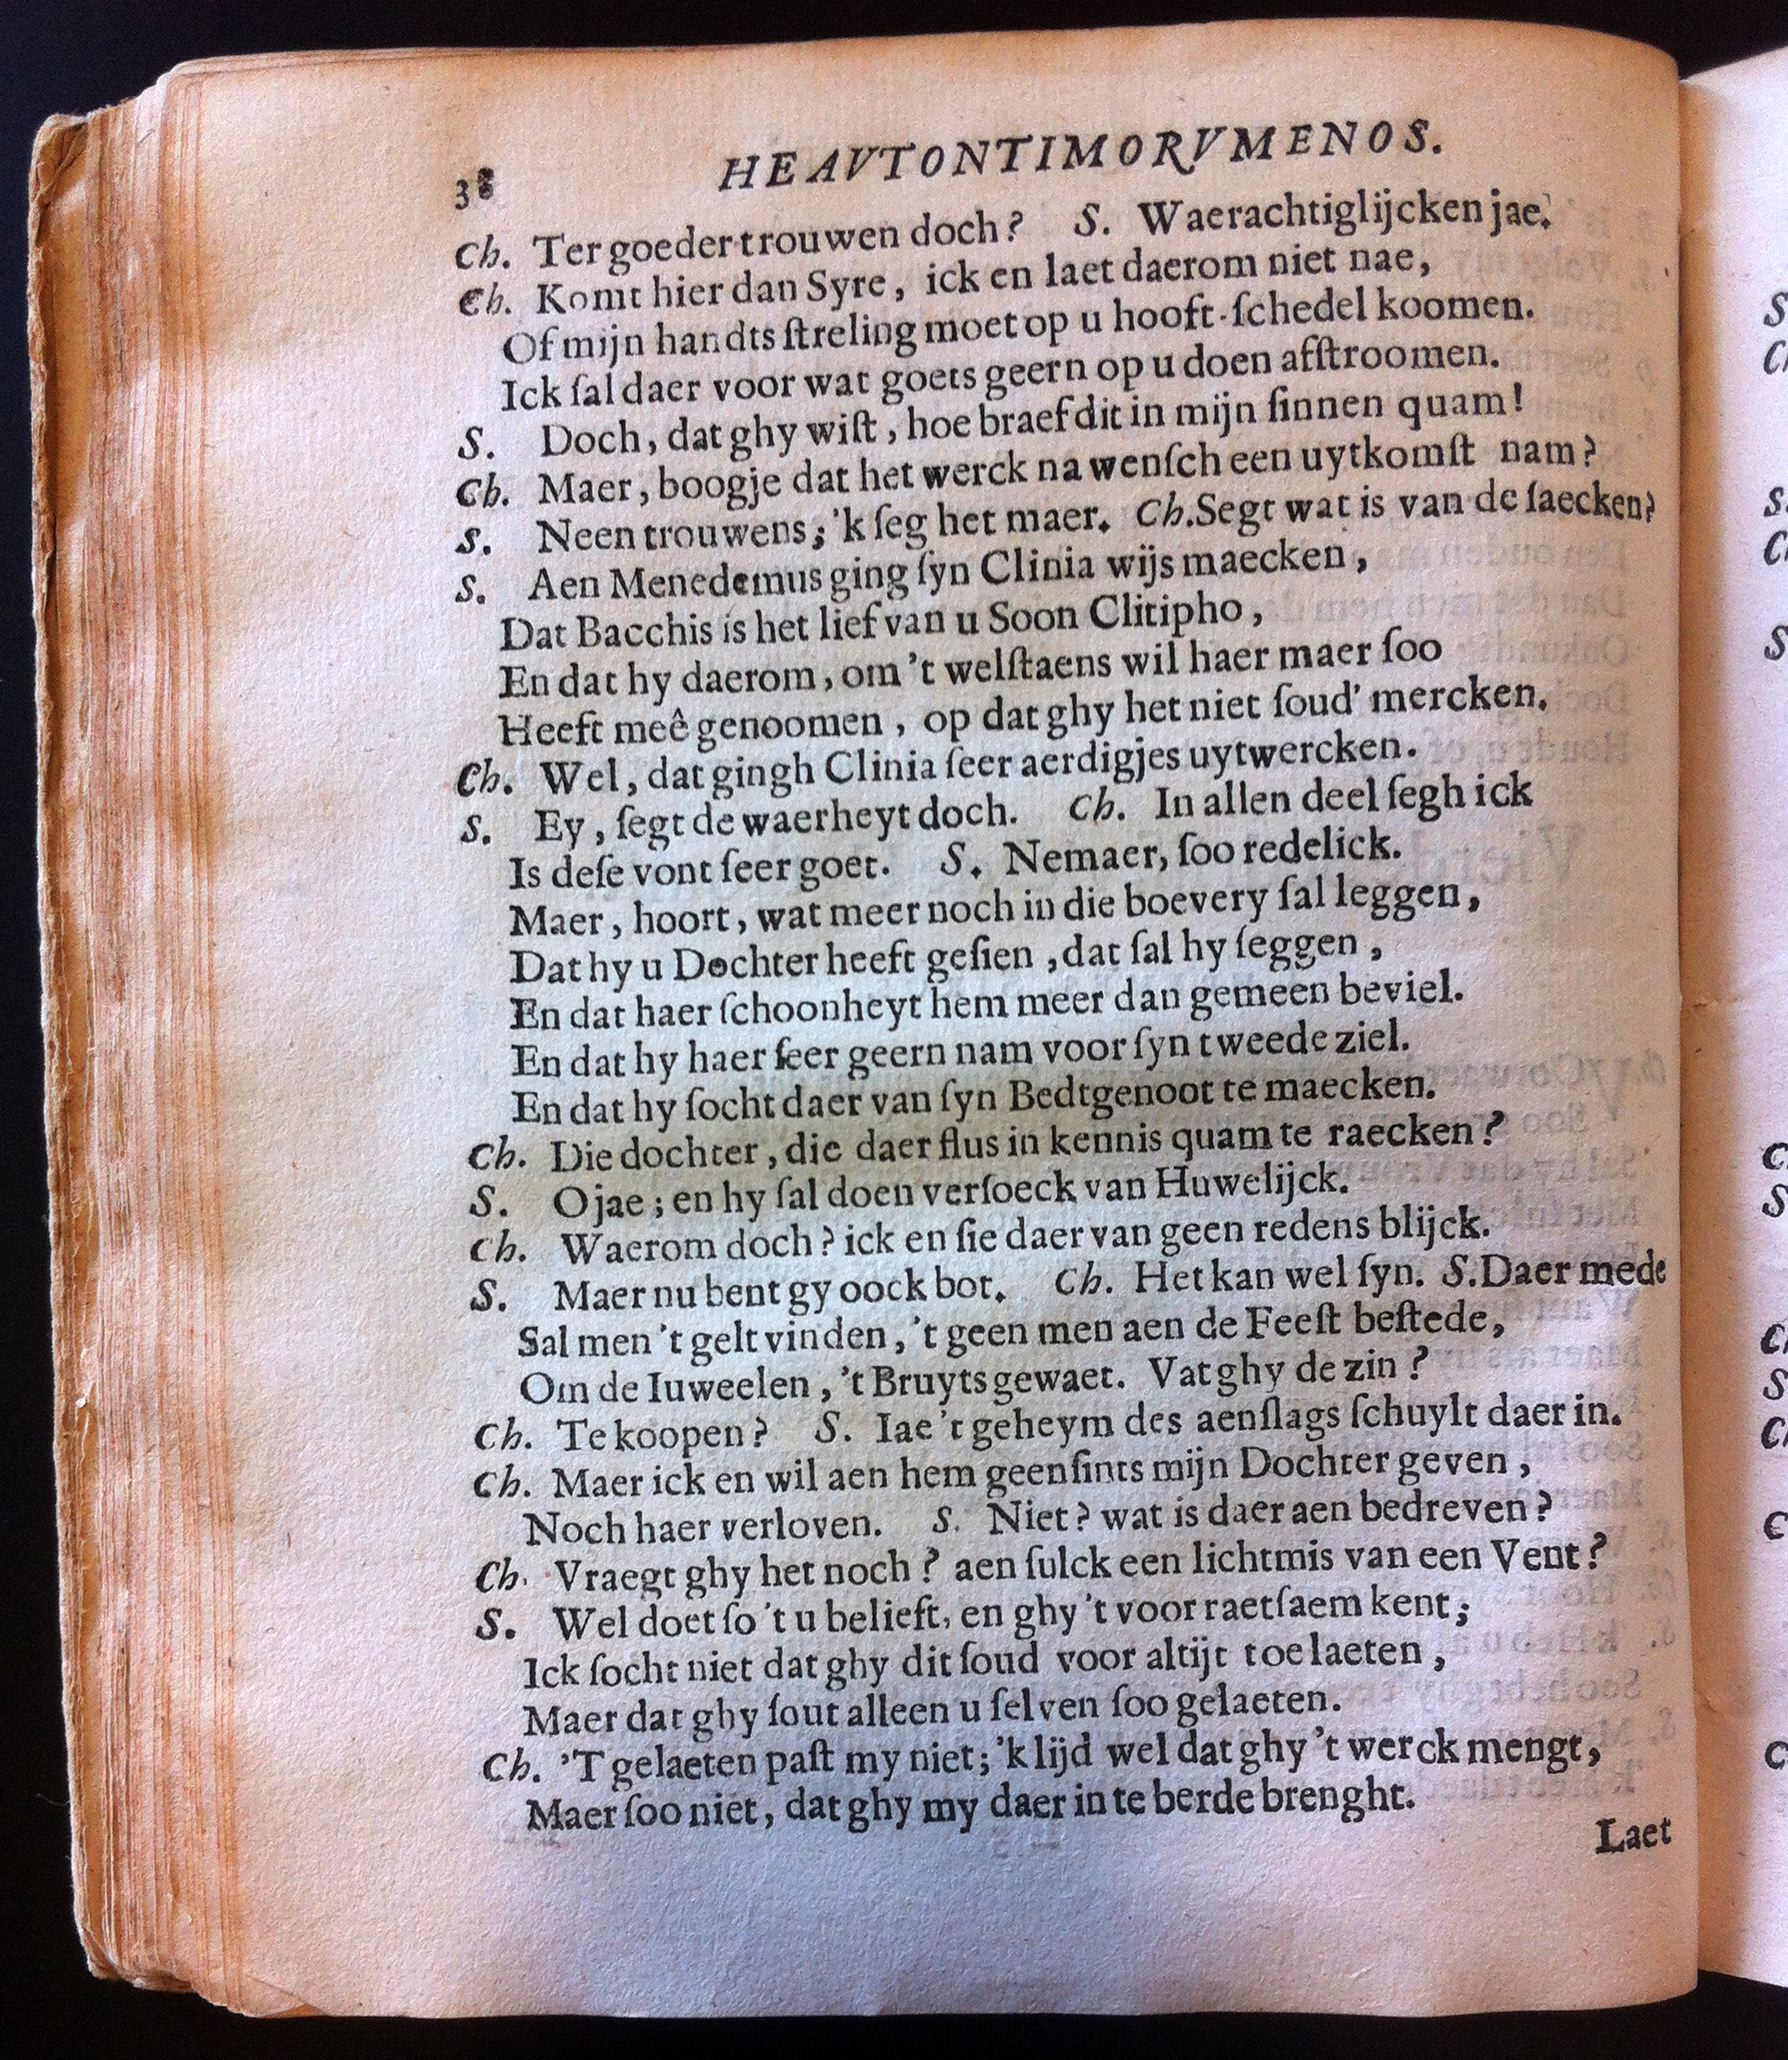 38 HEAVTONTIMORVMENOS.
Ch. Ter goeder trouwen doch? S. Waerachtiglijcken jae.
Ch. Komt hier dan Syre, ick en laet daerom niet nae,
Of mijn handts ſtreling moet op u hooft-ſchedel koomen.
Ick ſal daer voor wat goets geern op u doen afſtroomen.
S. Doch, dat ghy wiſt, hoe braef dit in mijn ſinnen quam!
Ch. Maer, boogje dat het werck na wenſch een uytkomſt nam?
S. Neen trouwens; 'k ſeg het maer. Ch. Segt wat is van de ſaecken?
S. Aen Menedemus ging ſyn Clinia wijs maecken,
Dat Bacchis is het lief van u Soon Clitipho,
En dat hy daerom, om 't welſtaens wil haer maer ſoo
Heeft meê genoomen, op dat ghy het niet ſoud' mercken.
Ch. Wel, dat gingh Clinia ſeer aerdigjes uytwercken.
S. Ey, ſegt de waerheyt doch. Ch. In allen deel ſegh ick
Is deſe vont ſeer goet. S. Nemaer, ſoo redelick.
Maer, hoort, wat meer noch in die boevery ſal leggen,
Dat hy u Dochter heeft geſien, dat ſal hy ſeggen,
En dat haer ſchoonheyt hem meer dan gemeen beviel.
En dat hy haer ſeer geern nam voor ſyn tweede ziel.
En dat hy ſocht daer van ſyn Bedtgenoot te maecken.
Ch. Die dochter, die daer flus in kennis quam te raecken?
S. O jae; en hy ſal doen verſoeck van Huwelijck.
Ch. Waerom doch? ick en ſie daer van geen redens blijck.
S. Maer nu bent gy oock bot. Ch. Het kan wel ſyn. S. Daer mede
Sal men 't gelt vinden, 't geen men aen de Feeſt beſtede,
Om de Iuweelen, 't Bruyts gewaet. Vat ghy de zin?
Ch. Te koopen? S. Iae 't geheym des aenſlags ſchuylt daer in.
Ch. Maer ick en wil aen hem geenſints mijn Dochter geven,
Noch haer verloven. S. Niet? wat is daer aen bedreven?
Ch. Vraegt ghy het noch? aen ſulck een lichtmis van een Vent?
S. Wel doet ſo 't u belieft, en ghy 't voor raetſaem kent;
Ick ſocht niet dat ghy dit ſoud voor altijt toelaeten,
Maer dat ghy ſout alleen u ſelven ſoo gelaeten.
Ch. 'T gelaeten paſt my niet; 'k lijd wel dat ghy 't werck mengt,
Maer ſoo niet, dat ghy my daer in te berde brenght.
Laet